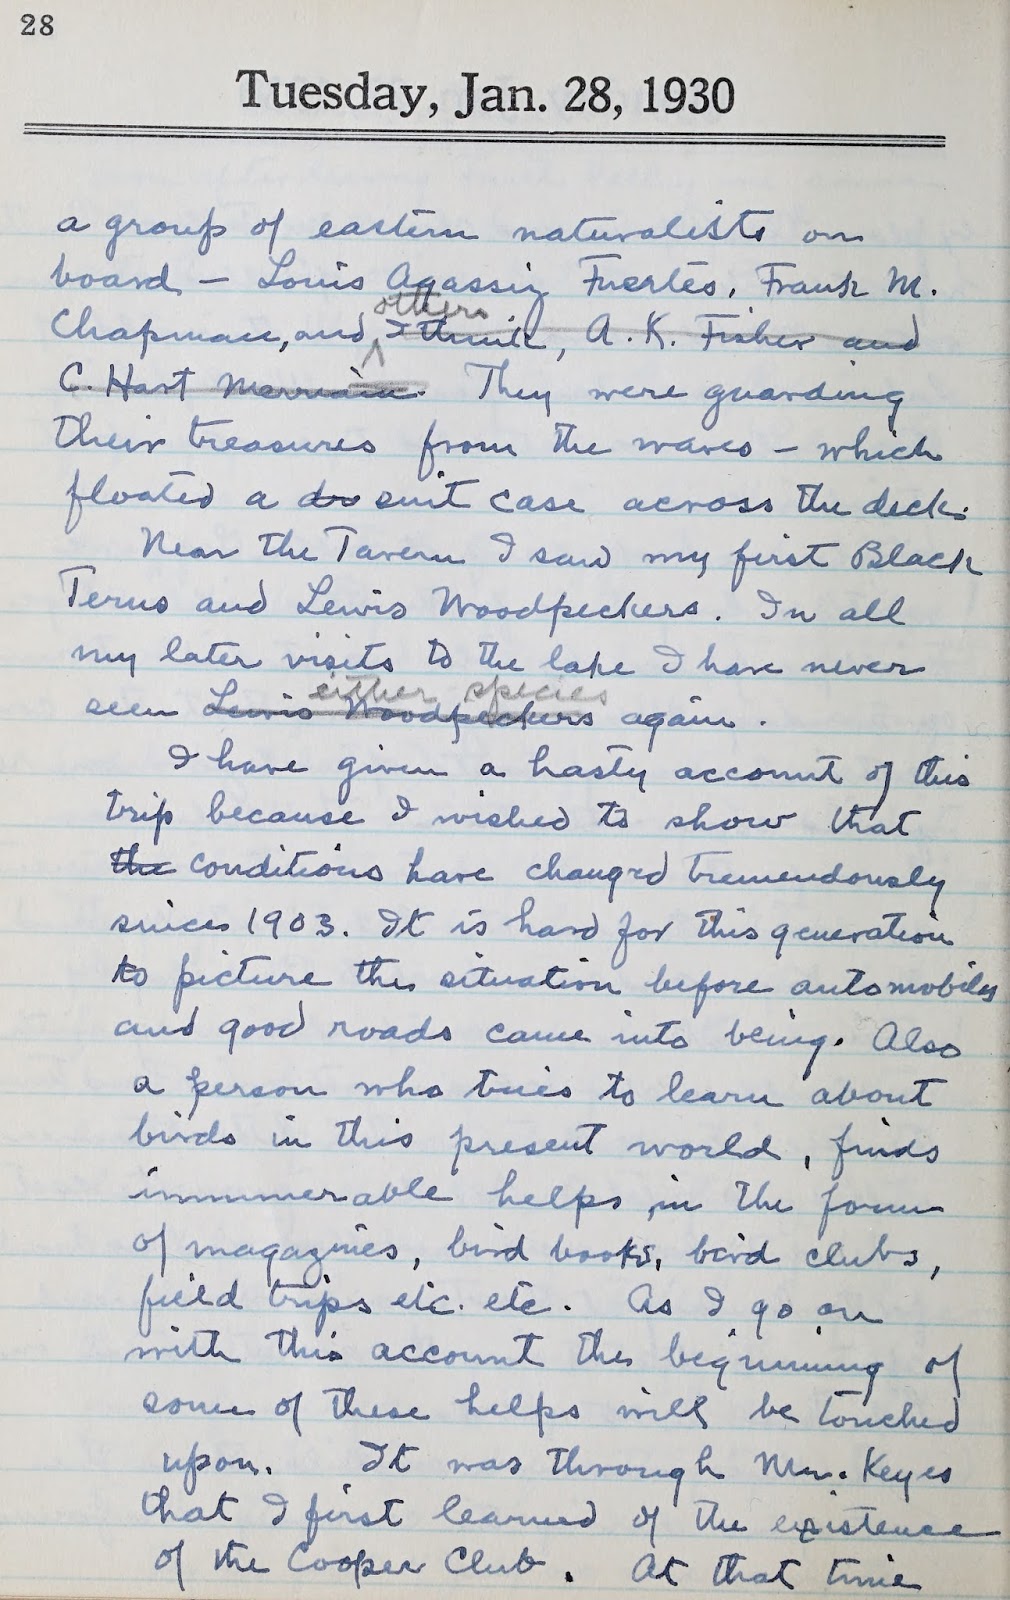 28
Tuesday, Jan. 28, 1930
a group of eastern naturalists on
board – Louis Agassiz Fuertes, Frank M.
others
Chapman, and I think, A. K. Fisher and
C. Hart Merriam. They were guarding
their treasures from the waves – which
floated a dr suit case across the deck.
Near the Tavern I saw my first Black
Terns and Lewis Woodpeckers. In all
my later visits to the lake I have never
either species
seen Lewis Woodpeckers again.
I have given a hasty account of this
trip because I wished to show that
the conditions have changed tremendously
since 1903. It is hard for this generation
to picture the situation before automobiles
and good roads came into being. Also
a person who tries to learn about
birds in this present world, finds
innumerable helps in the form
of magazines, bird books, bird clubs,
field trips etc. etc. As I go on
with this account the beginning of
some of these helps will be touched
upon. It was through Mr. Keyes
that I first learned of the existence
of the Cooper Club. At that time